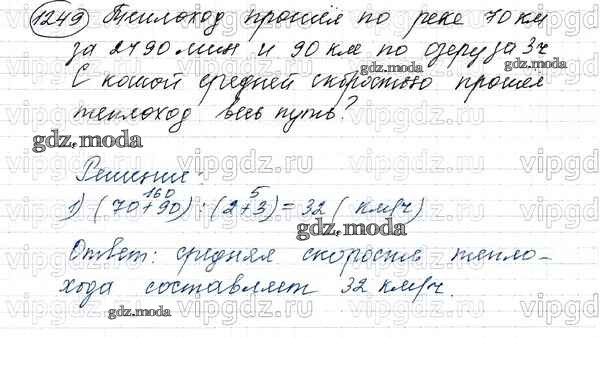 1249 Теплоход прошёл по реке 70 км
за 2ч 90 мин и 90 км по озеру за 3ч
gdz.moda gdz.moda
С какой средней скоростью прошёл
теплоход весь путь?
gdz.moda
vipgdz.ru vipgdz.ru vipgdz.ru
Решение:
160 5
1) (70+90) : (2+3) = 32 (км/ч)
gdz.moda
Ответ: средняя скорость тепло-
хода составляет 32 км/ч.
gdz.moda
vipgdz.ru vipgdz.ru vipgdz.ru